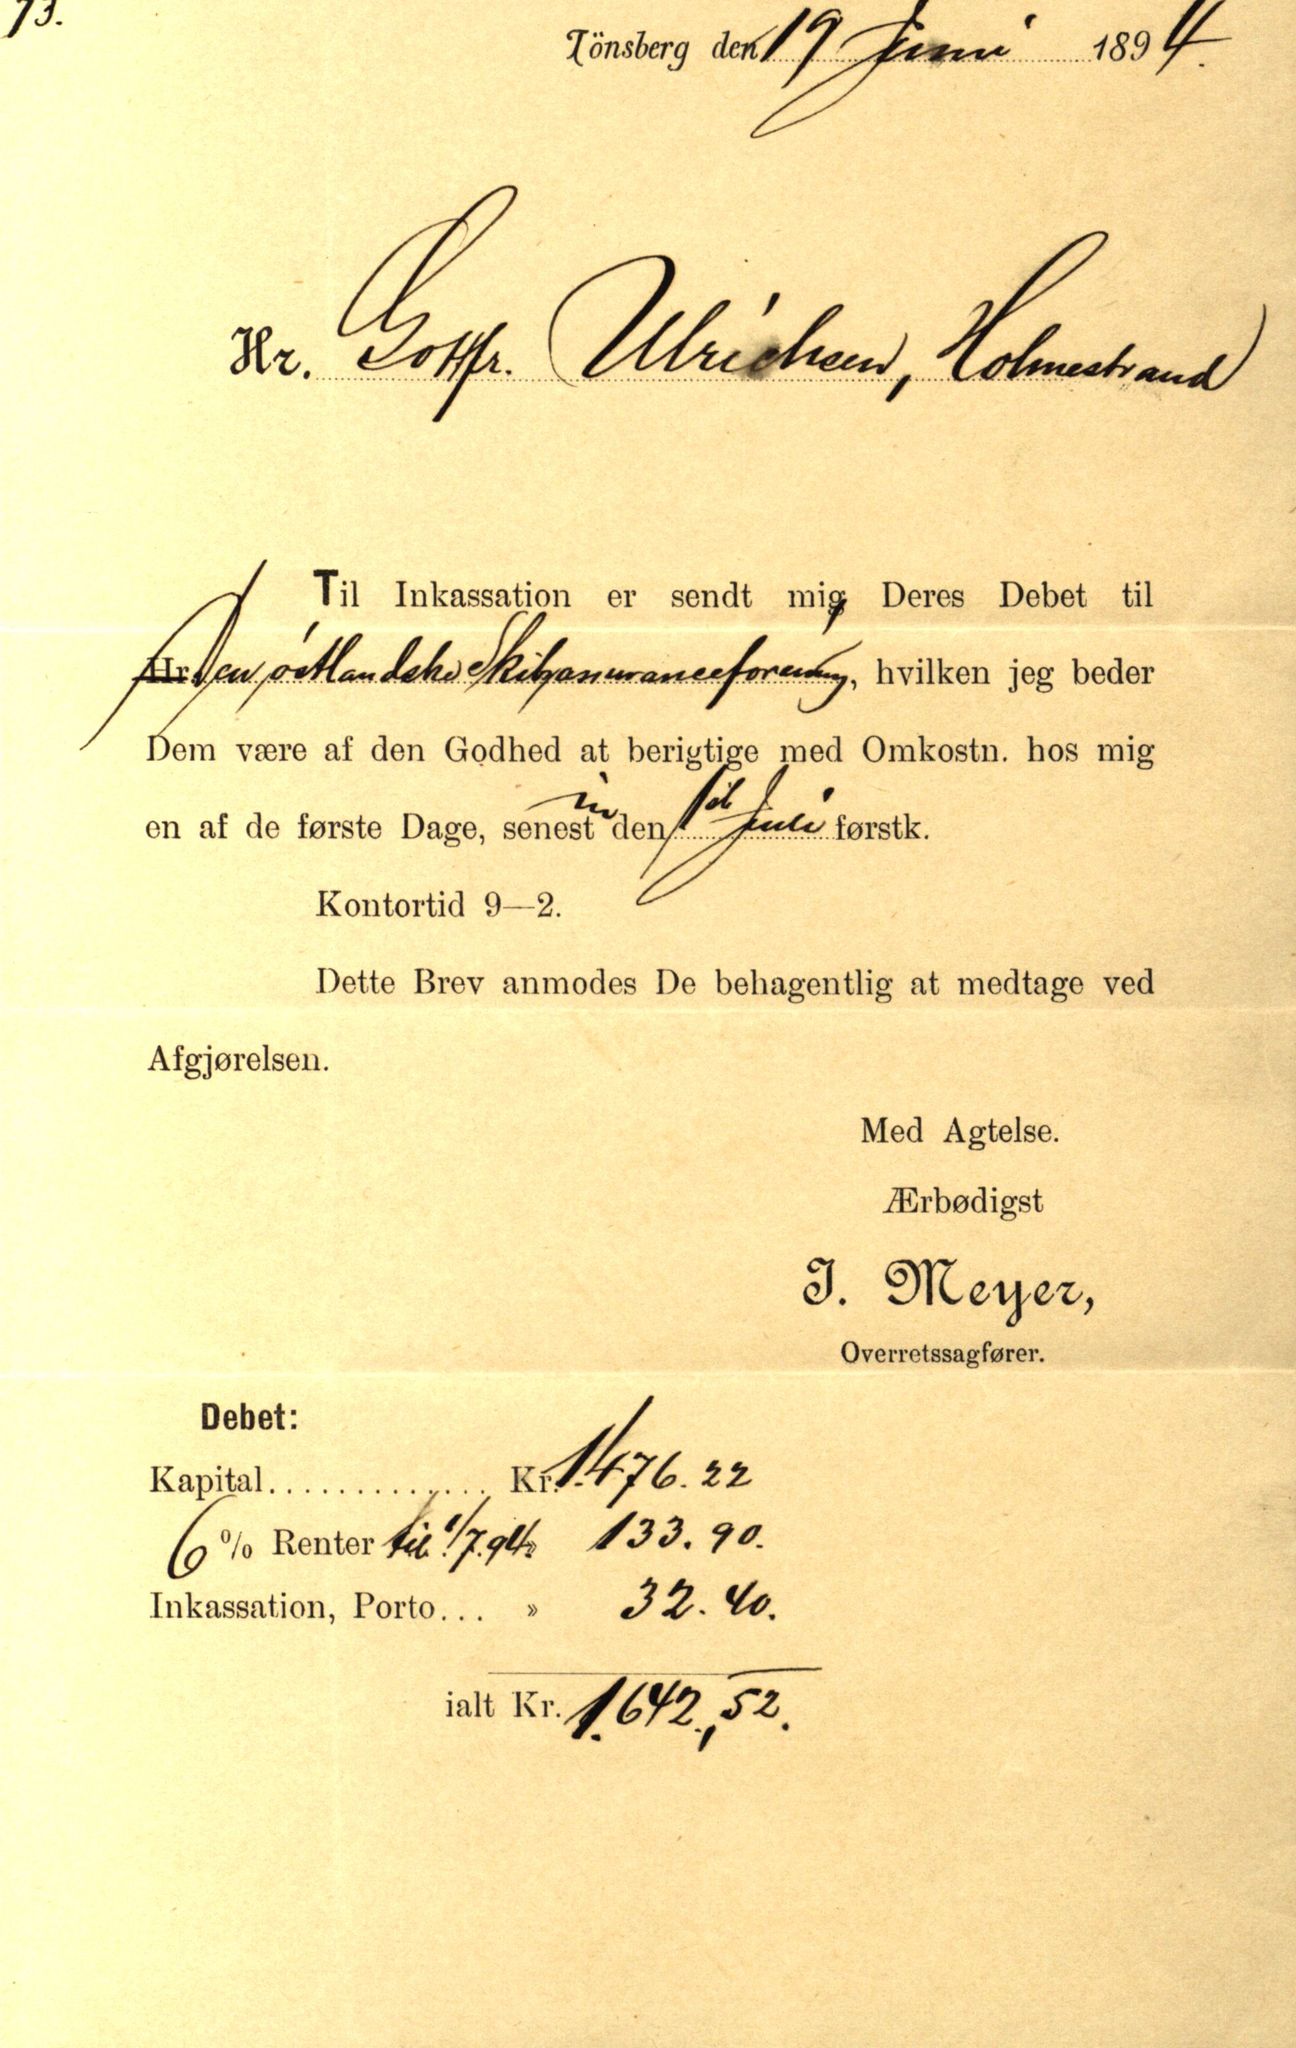 73.
Tönsberg den 19 Juni 1894.
Hr. Gottfr. Ulrichsen, Holmestrand
Til Inkassation er sendt mig Deres Debet til
Hr. Den østlandske Skibsassuranceforening, hvilken jeg beder
Dem være af den Godhed at berigtige med Omkostn. hos mig
en af de første Dage, senest in den 1st Juli førstk.
Kontortid 9—2.
Dette Brev anmodes De behagentlig at medtage ved
Afgjørelsen.
Med Agtelse.
Ærbødigst
J. Meyer,
Overretssagfører.
Debet:
Kapital.............. Kr. 1.476.22
6 % Renter til 1/7.94. » 133.90.
Inkassation, Porto... » 32.40.
ialt Kr. 1.642,52.